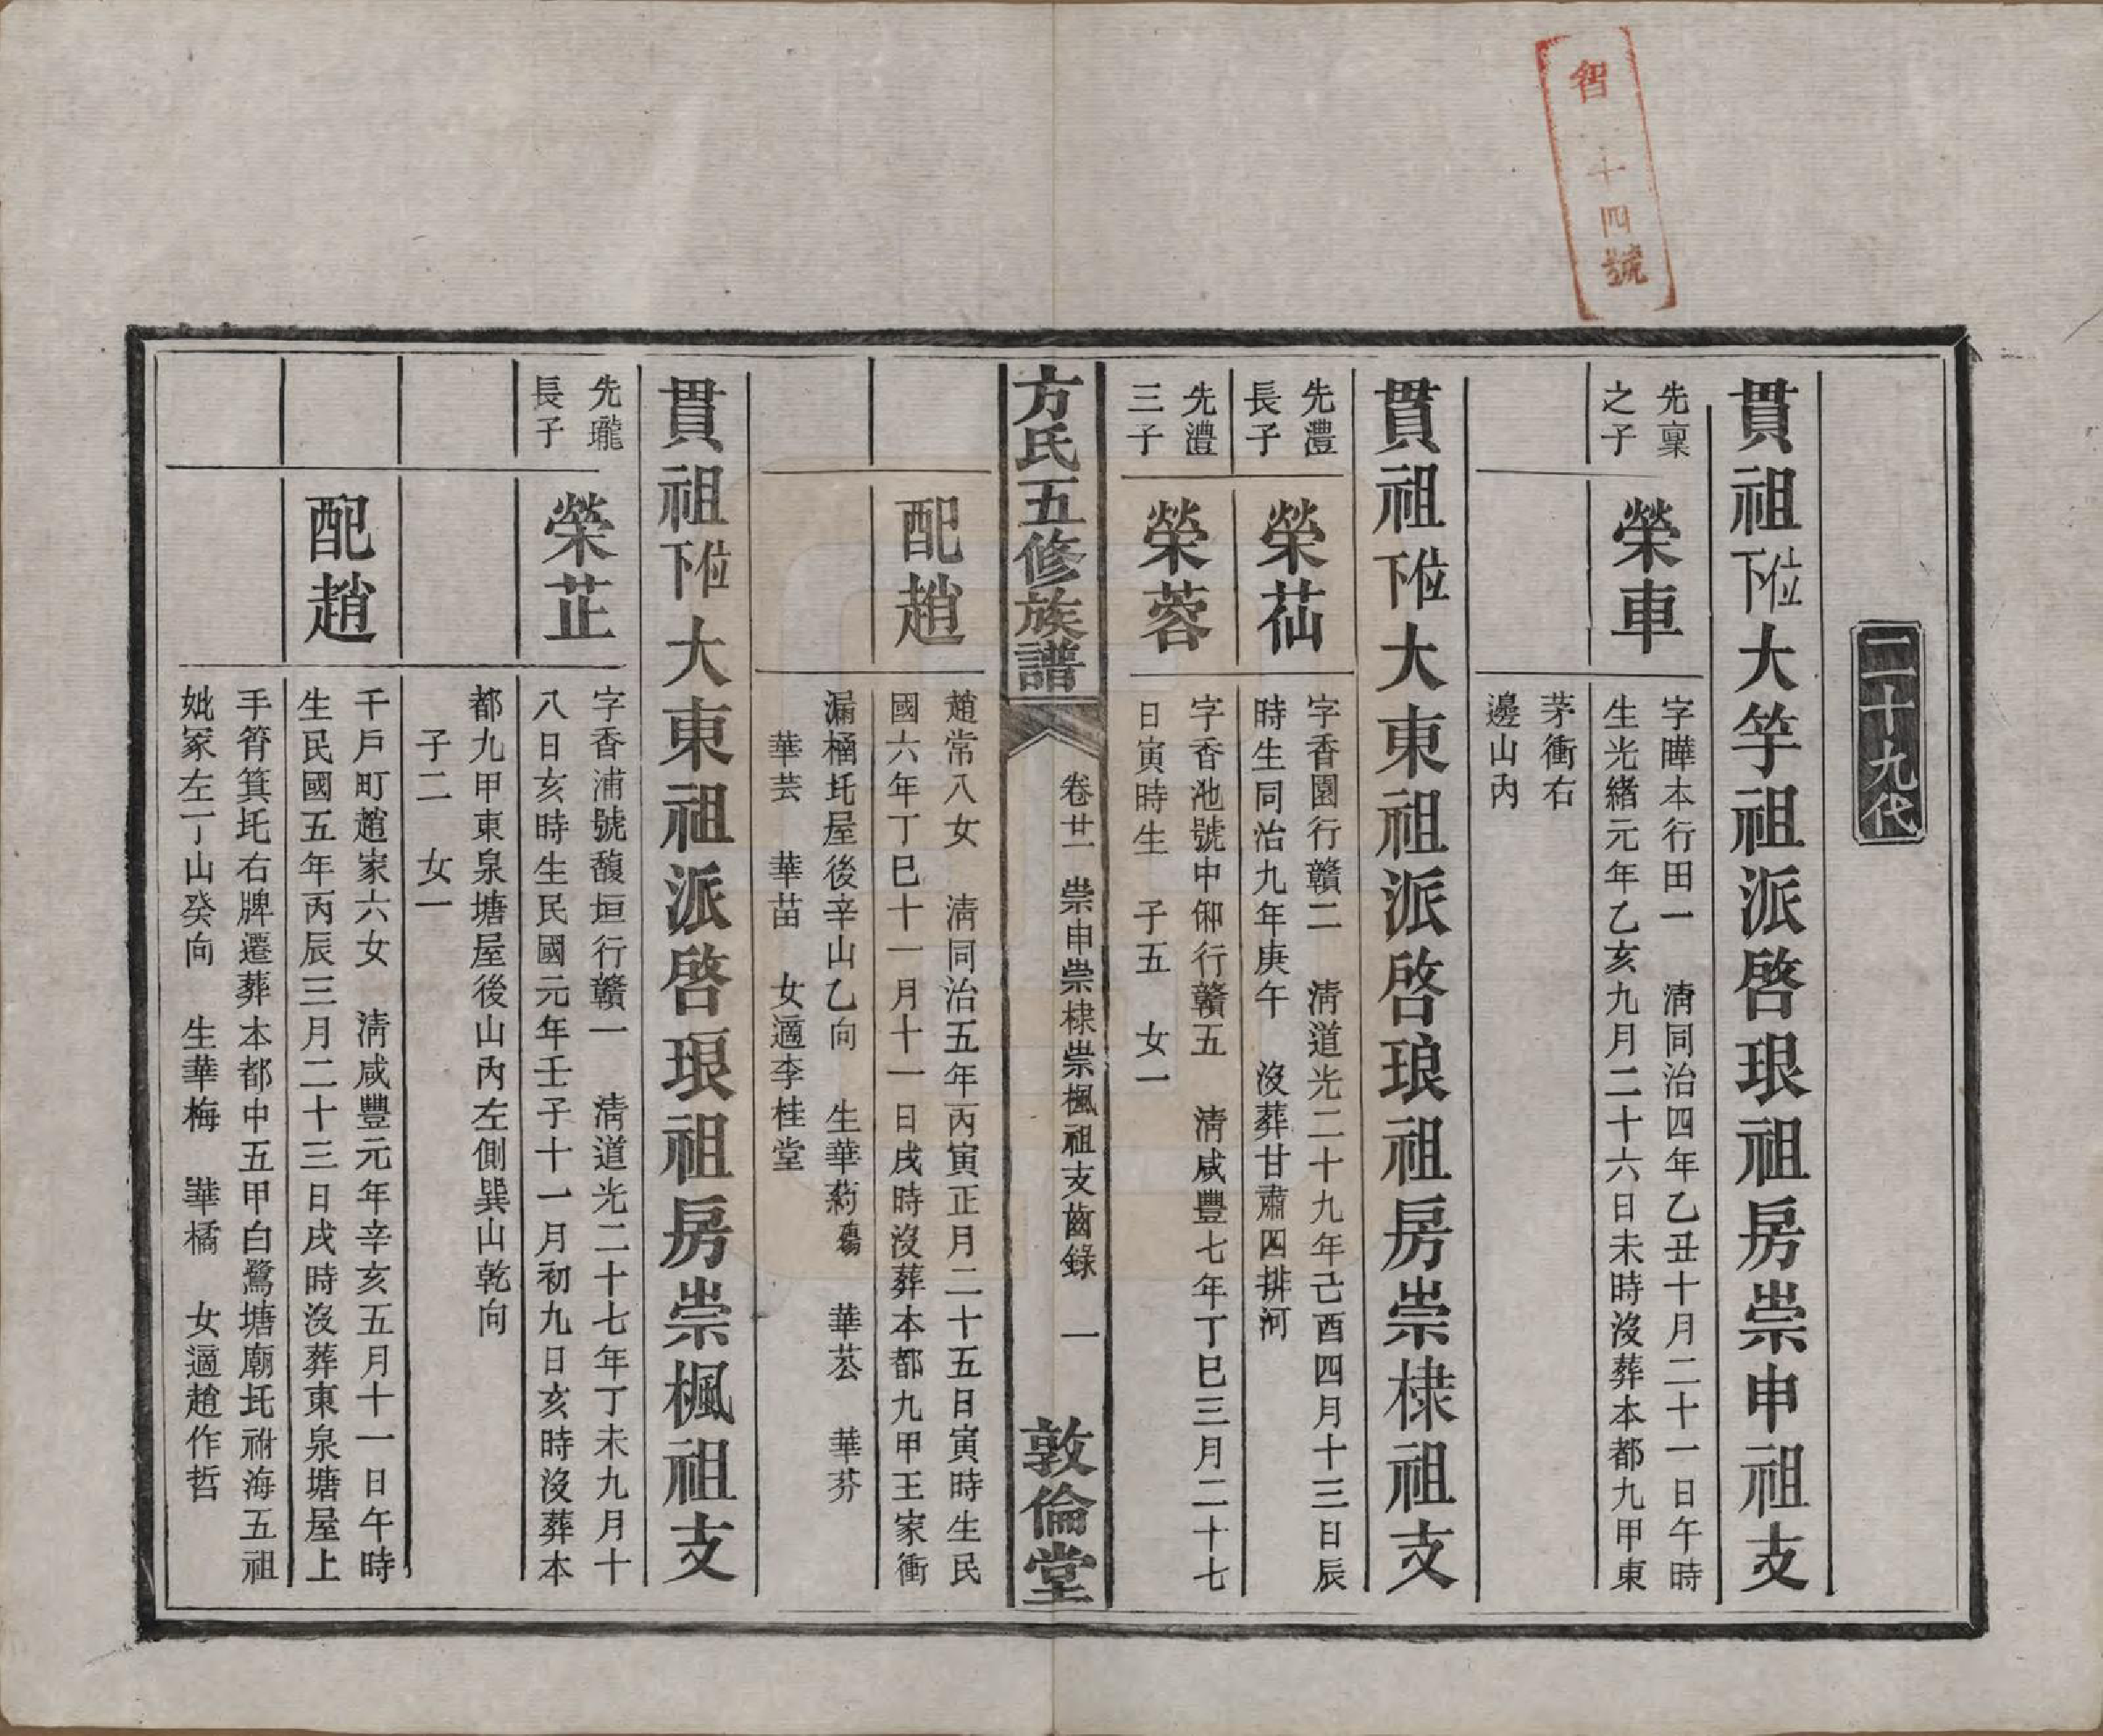 智
十四號
二十九代
貫祖位下大竽祖派啓珢祖房崇申祖支
先稟之子
榮車
字曄本行田一　淸同治四年乙丑十月二十一日午時
生光緒元年乙亥九月二十六日未時沒葬本都九甲東
茅衝右
邊山內
貫祖位下大東祖派啓琅祖房崇棣祖支
先灃長子
榮茘
字香園行贛二　淸道光二十九年己酉四月十三日辰
時生同治九年庚午　沒葬甘肅四排河
先灃三子
榮蓉
字香池號中卹行贛五　淸咸豐七年丁巳三月二十七
日寅時生　子五　女一
方氏五修族譜
卷廿一　崇申崇棣崇楓祖支齒錄　一
敦倫堂
配趙
趙常八女　淸同治五年丙寅正月二十五日寅時生民
國六年丁巳十一月十一日戌時沒葬本都九甲王家衝
漏桶圫屋後辛山乙向　生華葯殤　華苾　華芬
華芸　華苗　女適李桂堂
貫祖位下大東祖派啓珢祖房崇楓祖支
先瓏長子
榮芷
字香浦號馥垣行贛一　淸道光二十七年丁未九月十
八日亥時生民國元年壬子十一月初九日亥時沒葬本
都九甲東泉塘屋後山內左側巽山乾向
子二　女一
配趙
千戶町趙家六女　淸咸豐元年辛亥五月十一日午時
生民國五年丙辰三月二十三日戌時沒葬東泉塘屋上
手筲箕圫右牌遷葬本都中五甲白鷺塘廟圫祔海五祖
妣冢左丁山癸向　生華梅　華橘　女適趙作哲